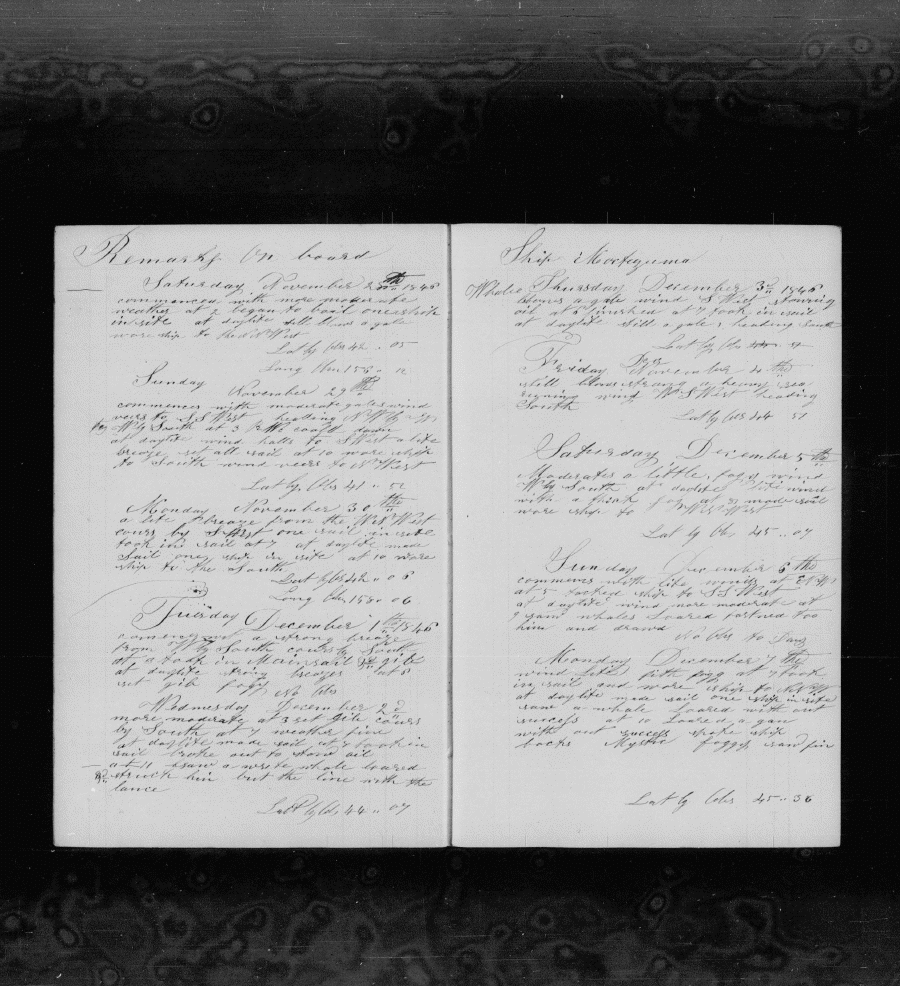 Remarks On board
Saturday November 28th 1846
commenced with more moderate
weather at 2 began to boil one ship
in site at daylite still blows a gale
wore ship to the West
Lat by Obs 42 .. 05
Long 158 ..
Sunday
November 29th
commences with moderate gales wind
veers to SSWest heading
W by South at 3 PM down
at daylite wind halls to SWest a lite
breeze set all sail at 10 wore ship
to South wind veers to West
Lat by Obs 41 .. 52
Monday November 30th
a lite breeze from the West
cours by one sail in site
took in sail at 7 at daylite made
Sail one ship in site at 10 wore
ship to the South
Lat by Obs 42 .. 08
Long Obs 158 .. 06
Tuesday December 1st 1846
commences with a strong breeze
from W by South cours by South
at 2 took in Mainsail & gib
at daylite strong breezes at 8
set gib foggy
No Obs
Wednesday December 2d
more moderate at 3 set gib cours
by South at 7 weather fine
at daylite made sail at 7 took in
sail broke out to stow oil
at 11 saw a write whale loared
struck him but the line with the
lance
Lat by Obs 44 .. 07
Ship Moctezuma
Whales Thursday December 3d 1846
blows a gale wind SWest stowing
oil at finished at 7 took in sail
at daylite still a gale heading South
Lat by Obs 51
Friday Dec
November 4th
still blows strong a heavy sea
wind WSWest heading
South
Lat by Obs 44 51
Saturday December 5th
Moderates a little, fogg wind
W by South at daylite lite wind
with a thick fog at made sail
wore ship to West
Lat by Obs 45 .. 07
Sunday December 6th
commences with lite winds at
at 5 tacked ship to SSWest
at daylite wind more moderate at
9 saw whales loared fastned too
him and drawed
No Obs to Long
Monday December 7th
wind lite with fogg at 7 took
in sail and wore ship to
at daylite made sail one ship in site
saw a whale loared with out
success at 10 loared a gan
with out success spoke ship
boats Mystic foggy saw fin
Lat by Obs 45 .. 36